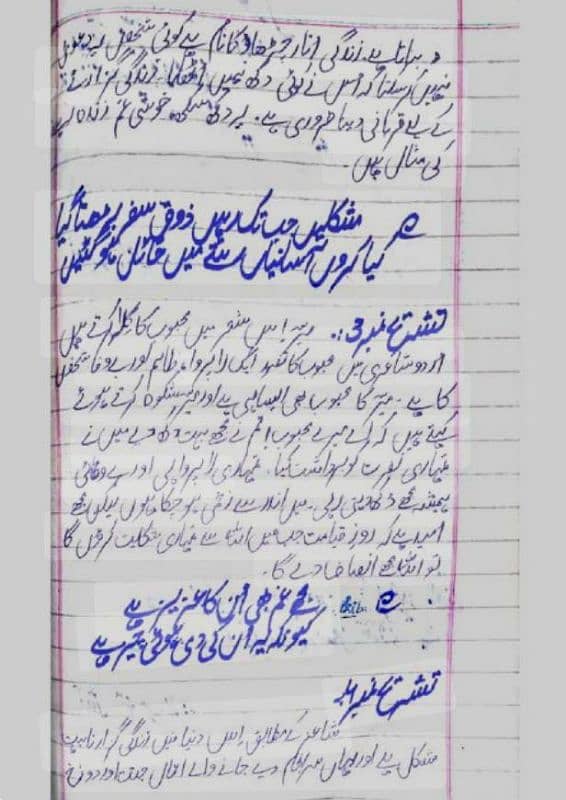 ہر انسان زندگی اتار چڑھاؤ کا نام ہے کوئی شخص یہ دعویٰ
نہیں کر سکتا کہ اس نے کوئی دکھ نہیں اٹھایا۔ زندگی گزارنے
کے لیے قربانی دینا ضروری ہے۔ یہ دکھ سکھ، خوشی غم زندہ
کی مثال ہیں۔
مشکلیں جب تک رہیں ذوق سفر بڑھتا گیا
کیا کروں آسانیاں رستے میں حائل ہو گئیں
تشریح نمبر 3: میر اس شعر میں محبوب کا گلہ کرتے ہیں
اردو شاعری میں محبوب کا تصور ایک لاپروا، ظالم اور بے وفا شخص
کا ہے۔ میر کا محبوب بھی ایسا ہی ہے اور میر شکوہ کرتے ہوئے
کہتے ہیں کہ اے میرے محبوب! تم نے مجھے بہت دکھ دیے میں نے
تمہاری نفرت کو برداشت کیا۔ تمہاری لاپروائی اور بے وفائی
ہمیشہ مجھے دکھ دیتی رہی۔ میں اندر سے زخمی ہو چکا ہوں لیکن مجھے
امید ہے کہ روز قیامت جب میں اللہ سے تمہاری شکایت کروں گا
تو اللہ مجھے انصاف دے گا۔
مجھے غم بھی ان کا عزیز ہے
کیونکہ یہ ان کی دی ہوئی چیز ہے
تشریح نمبر 4:
شاعر کے مطابق اس دنیا میں زندگی گزارنا بہت
مشکل ہے اور یہاں سر انجام دیے جانے والے اعمال جنت اور دوزخ